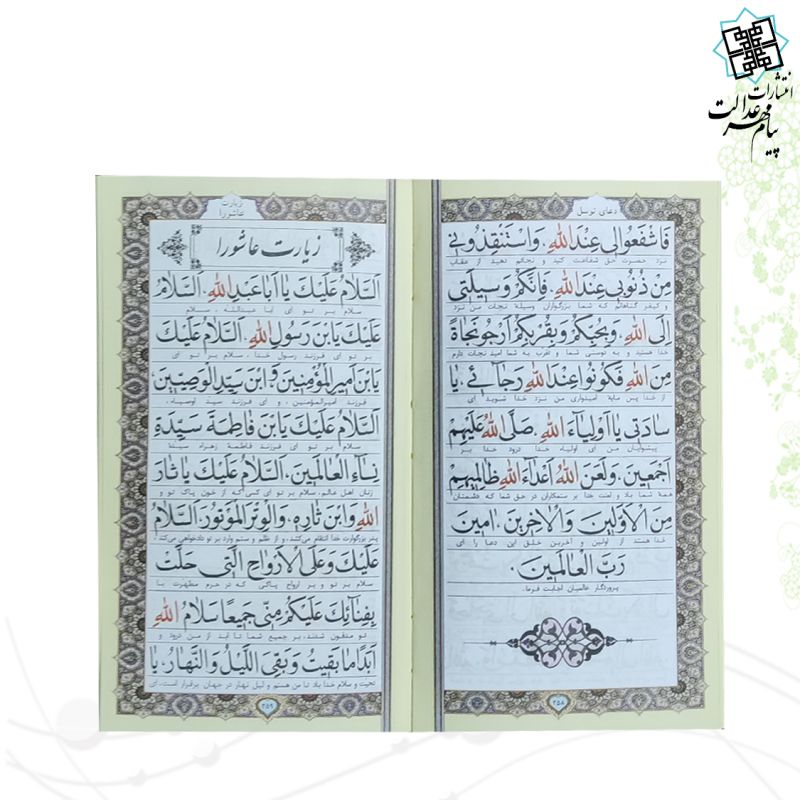 انتشارات
پیام مهر عدالت
دعای توسل
فَاشْفَعُوا لى عِنْدَ اللّٰهِ، وَاسْتَنْقِذُونى
نزد حضرت حق شفاعت کنید و نجاتم دهید از عقاب
مِنْ ذُنُوبى عِنْدَ اللّٰهِ، فَاِنَّكُمْ وَسيلَتى
و کیفر گناهانم که شما بزرگواران وسیله نجات من نزد
اِلَى اللّٰهِ، وَبِحُبِّكُمْ وَبِقُرْبِكُمْ اَرْجُو نَجاةً
خدا هستید و به دوستی شما و تقرب به شما امید نجات دارم
مِنَ اللّٰهِ فَكُونُوا عِنْدَ اللّٰهِ رَجآئى، يا
از خدا پس مایه امیدواری من نزد خدا شوید ای
سادَتى يا اَوْلِيآءَ اللّٰهِ، صَلَّى اللّٰهُ عَلَيْهِمْ
پیشوایان من ای اولیاء خدا درود خدا بر
اَجْمَعينَ، وَلَعَنَ اللّٰهُ اَعْدآءَ اللّٰهِ ظالِميهِمْ
همه شما باد و لعنت خدا بر ستمکاران در حق شما که دشمنان
مِنَ الْاَوَّلينَ وَالْاخِرينَ، امينَ
خدا هستند از اولین و آخرین خلق این دعا را ای
رَبَّ الْعالَمينَ.
پروردگار عالمیان اجابت فرما.
۲۵۸
زیارت
عاشورا
زیارت عاشورا
اَلسَّلامُ عَلَيْكَ يا اَبا عَبْدِ اللّٰهِ، اَلسَّلامُ
سلام بر تو ای ابا عبدالله، سلام
عَلَيْكَ يَا بْنَ رَسُولِ اللّٰهِ، اَلسَّلامُ عَلَيْكَ
بر تو ای فرزند رسول خدا، سلام بر تو ای
يَا بْنَ اَميرِ الْمُؤْمِنينَ وَ ابْنَ سَيِّدِ الْوَصِيّينَ،
فرزند امیرالمؤمنین، و ای فرزند سید اوصیاء،
اَلسَّلامُ عَلَيْكَ يَا بْنَ فاطِمَةَ سَيِّدَةِ
سلام بر تو ای فرزند فاطمه زهراء سیده
نِسآءِ الْعالَمينَ، اَلسَّلامُ عَلَيْكَ يا ثارَ
زنان اهل عالم، سلام بر تو ای کسی که از خون پاک تو و
اللّٰهِ وَابْنَ ثارِهِ، وَالْوِتْرَ الْمَوْتُورَ، اَلسَّلامُ
پدر بزرگوارت خدا انتقام می‌کشد، و از ظلم و ستم وارد بر تو دادخواهی می‌کند
عَلَيْكَ وَعَلَى الْاَرْواحِ الَّتى حَلَّتْ
سلام بر تو و بر ارواح پاکی که در حرم مطهرت با
بِفِنآئِكَ عَلَيْكُمْ مِنّى جَميعًا سَلامُ اللّٰهِ
تو مدفون شدند، بر جمیع شما تا ابد از من درود و
اَبَدًا ما بَقيتُ وَ بَقِىَ اللَّيْلُ وَالنَّهارُ، يا
تحیت و سلام خدا باد تا من هستم و لیل نهار در جهان برقرار است، ای
۲۵۹